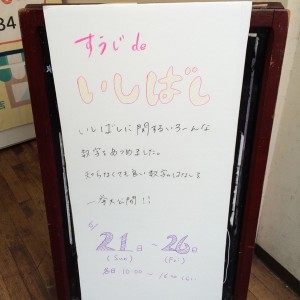 すうじde
いしばし
いしばしに関するいろーんな
数字をあつめました。
知らなくても良い数字のはなしを
一挙大公開!!
21日~26日
(Sun) (Fri)
10:00~16:00
34